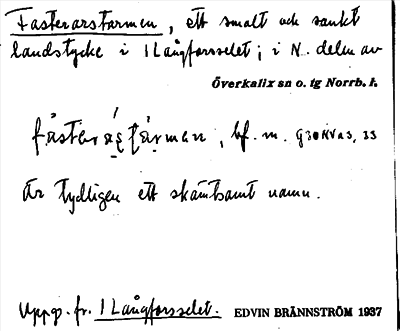 Fasterarstarmen, ett smalt och sankt
landstycke i l Långforsselet; i N. delen av
Överkalix sn o. tg Norrb. l.
bf. m.
Är tydligen ett skämtsamt namn.
Uppg. fr. l Långforsselet. EDVIN BRÄNNSTRÖM 1937